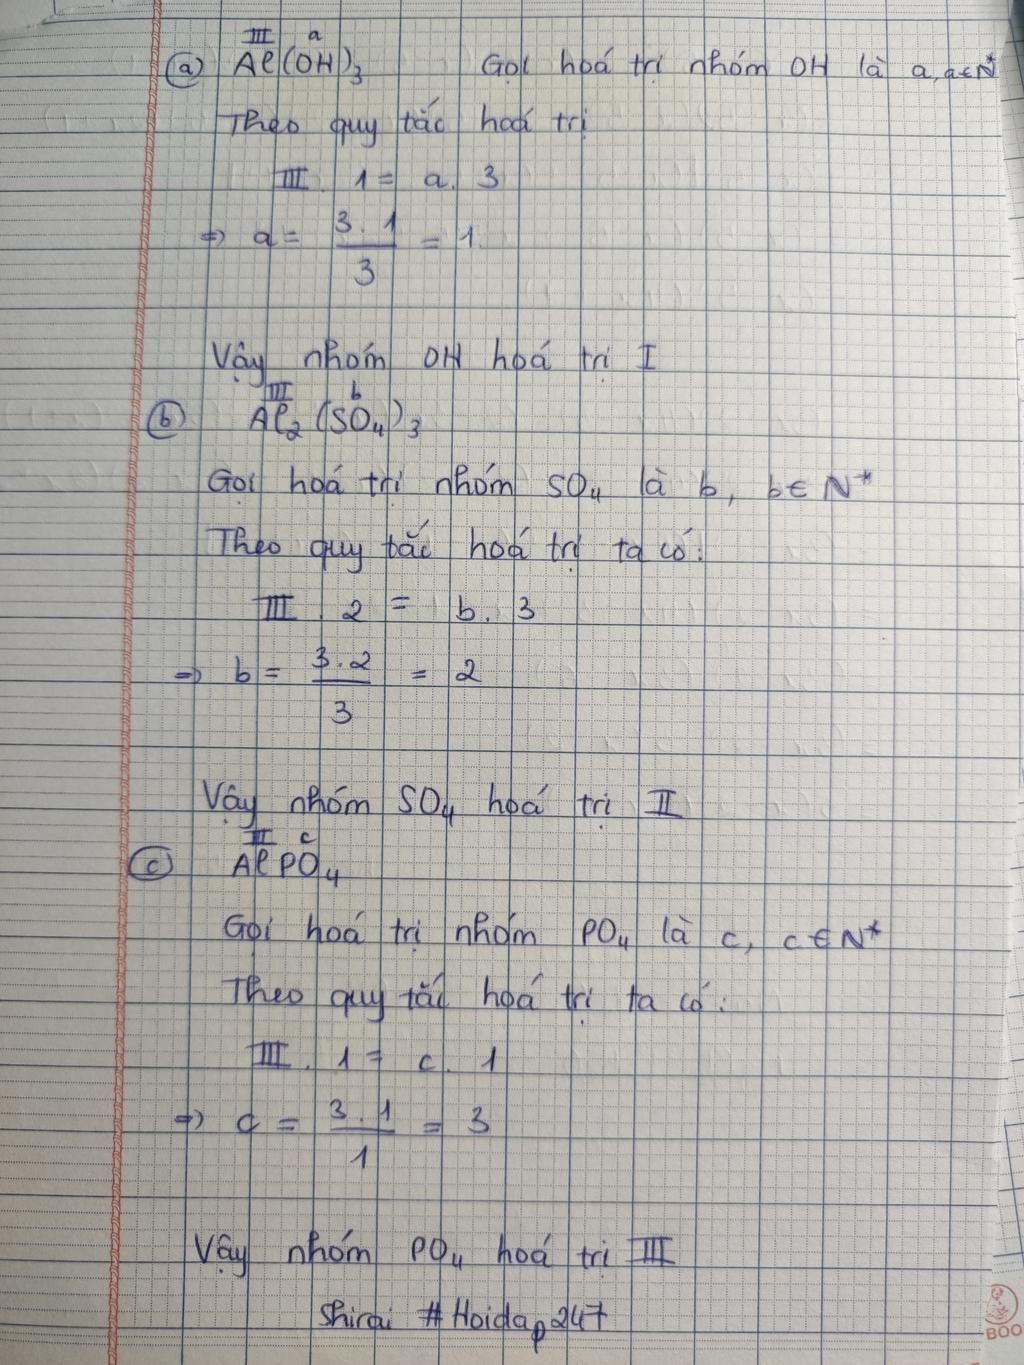 III a
(a) Al(OH)3 Gọi hoá trị nhóm OH là a, a∈N*
Theo quy tắc hoá trị
III . 1 = a . 3
=> a = 3 . 1 / 3 = 1
Vậy nhóm OH hoá trị I
III b
(b) Al2(SO4)3
Gọi hoá trị nhóm SO4 là b, b∈N*
Theo quy tắc hoá trị ta có:
III . 2 = b . 3
=> b = 3 . 2 / 3 = 2
Vậy nhóm SO4 hoá trị II
III c
(c) AlPO4
Gọi hoá trị nhóm PO4 là c, c∈N*
Theo quy tắc hoá trị ta có:
III . 1 = c . 1
=> c = 3 . 1 / 1 = 3
Vậy nhóm PO4 hoá trị III
Shirai #Hoidap247
BOO